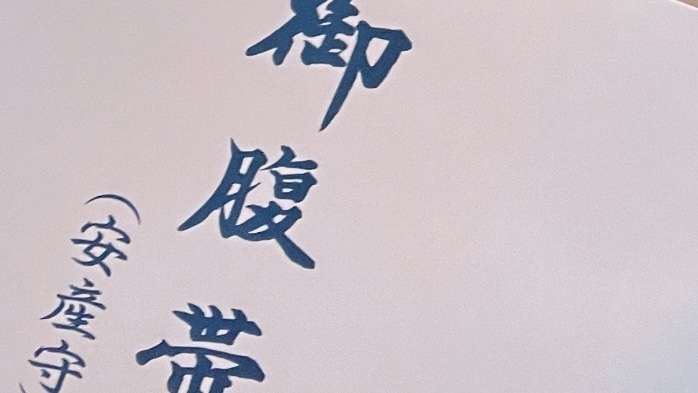 御腹帯
(安産守)